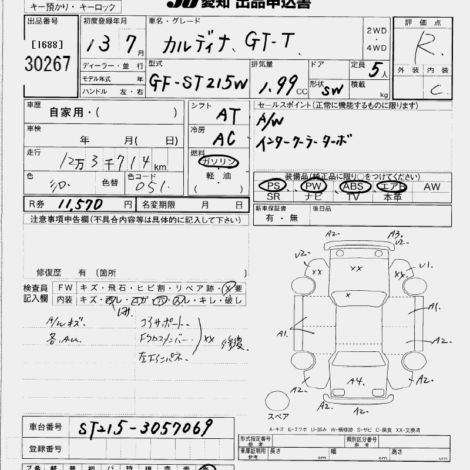 キー預かり・キーロック
JU 愛知 出品申込書
出品番号
[1688]
30267
初度登録年月
13年 7月
車名・グレード
カルディナ、GT-T
2WD
・
4WD
評価点
R
外装 内装
C
ディーラー・並行
モデル年式 年
ハンドル 左・右
型式
GF-ST215W
排気量
1.99 CC
ドア
形状 SW
定員
5人
積載
kg
車歴
自家用・( )
シフト
AT
セールスポイント(正常に機能するものに限ります)
A/W
インタークーラーターボ
車検
年 月( 日)
冷房
AC
走行
12万3千714 km
燃料
ガソリン
軽・油
色
色替
色コード
051
装備品(純正品に限り○をつけてください)
PS PW ABS エアB AW
SR ナビ TV 本革
R券 11,570
名変期限 月 日
新車保証書
有・無
後日品
注意事項申告欄(不具合内容等は具体的に記入して下さい)
修復歴 有 [箇所 ]
検査員
記入欄
FW キズ・飛石・ヒビ割・リペア跡・X要
内装
キレ・破し
コアサポート
FクロスメンバーXX 修復
左Fインパネ
A2. A3.
U2. V2.
XX XX
U1.
X
A1. A1.
A4.
A2. A2.
A2. A2.
スペア
A-キズ E-エクボ U-凹み W-補修跡 S-サビ C-腐食 XX-交換済
車台番号 ST215-3057069
登録番号
形式指定番号 類別区分番号
長さ cm 幅 cm 高さ cm